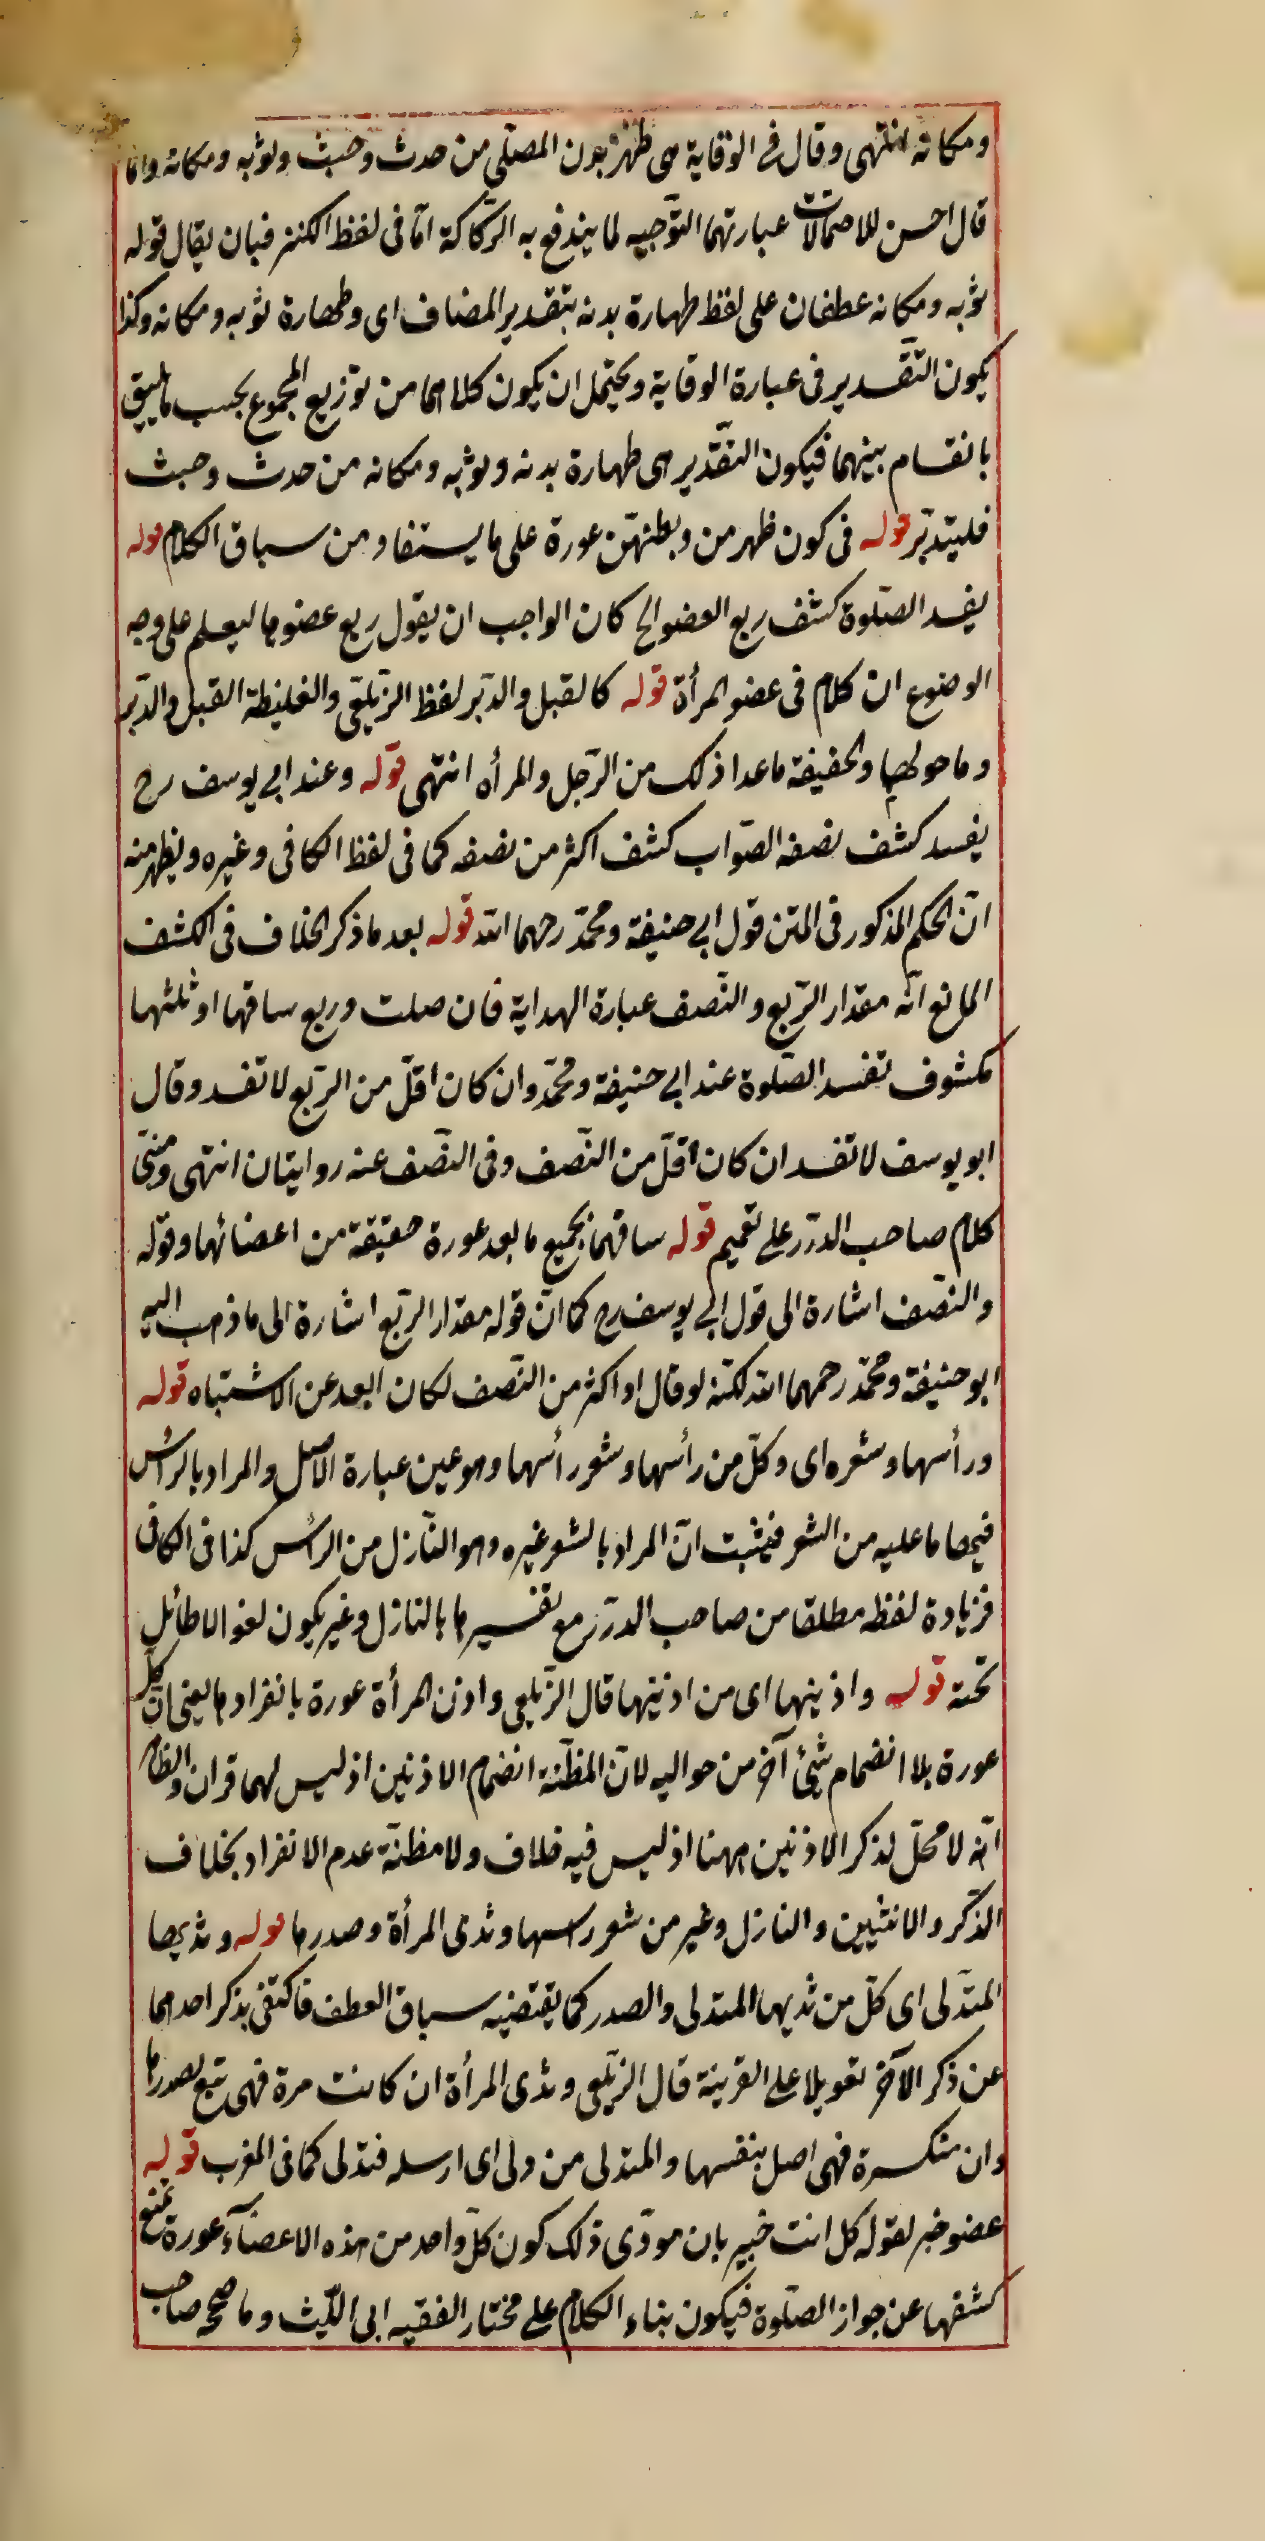 ومكانه انتهى وقال فى الوقاية هى طهر بدن المصلّى من حدث وخبث وثوبه ومكانه وانما
قال احسن للاحتمالات عبارتهما التّوجيه لما يندفع به الرّكاكة امّا فى لفظ الكنز فبان يقال قوله
ثوبه ومكانه عطفان على لفظ طهارة بدنه بتقدير المضاف اى وطهارة ثوبه ومكانه وكذا
يكون التّقدير فى عبارة الوقاية ويحتمل ان يكون كلاهما من توزيع المجموع بحسب ما يليق
بانقسام بينهما فيكون التقدير هى طهارة بدنه وثوبه ومكانه من حدث وخبث
فليتدبّر قوله فى كون ظهر من وبطنهنّ عورة على ما يستفاد من سباق الكلام قوله
يفسد الصّلوة كشف ربع العضو الخ كان الواجب ان يقول ربع عضوها ليعلم على وجه
الوضوع ان كلام فى عضو المرأة قوله كالقبل والدّبر لفظ الزّيلعى والغليظة القبل والدّبر
وما حولهما والخفيفة ما عدا ذلك من الرّجل والمرأه انتهى قوله وعند ابى يوسف رح
يفسد كشف نصفه الصّواب كشف اكثر من نصفه كما فى لفظ الكافى وغيره ويظهر منه
انّ الحكم المذكور فى المتن قول ابى حنيفة ومحمّد رحهما الله قوله بعد ما ذكر الخلاف فى الكشف
المانع انّه مقدار الرّبع والنّصف عبارة الهداية فان صلت وربع ساقها او ثلثهما
مكشوف تفسد الصّلوة عند ابى حنيفة ومحمّد وان كان اقلّ من الرّبع لا تفسد وقال
ابو يوسف لا تفسد ان كان اقلّ من النّصف وفى النّصف عنه روايتان انتهى ومبنى
كلام صاحب الدّرر على تعميم قوله ساقهما بجميع ما يعد عورة حقيقة من اعضائهما وقوله
والنّصف اشارة الى قول ابى يوسف رح كما انّ قوله مقدار الرّبع اشارة الى ما ذهب اليه
ابو حنيفة ومحمّد رحمهما الله لكنّه لو قال او اكثر من النّصف لكان ابعد عن الاشتباه قوله
ورأسها وشعره اى وكلّ من رأسها وشعر رأسها وهو عين عبارة الاصل والمراد بالرأس
فيحصا ما عليه من الشعر فيثبت انّ المراد بالشعر غيره وهو النّازل من الرأس كذا فى الكافى
فزيادة لفظه مطلقا من صاحب الدّرر مع تفسيرها بالنازل وغير يكون لغوا لا طائل
تحته قوله واذينها اى من اذنيها قال الزّيلعى واذن المرأة عورة بانفرادها يعنى انّ كلّ
عورة بلا انضمام شئ آخر من حواليه لانّ المظنّة انضمام الاذنين اذ ليس لهما قران والظاهر
انّه لا محلّ لذكر الاذنين ههنا اذ ليس فيه خلاف ولا مظنّة عدم الانفراد بخلاف
الذّكر والانثيين والنازل وغير من شعر رأسها وثدى المرأة وصدرها قوله وثديها
المتدلّى اى كلّ من ثديها المتدلى والصدر كما يقتضيه سباق العطف فاكتفى بذكر احدهما
عن ذكر الآخر تعويلا على القرينة قال الزّيلعى وثدى المرأة ان كانت مرة فهى تتبع لصدرها
وان منكسرة فهى اصل بنفسها والمتدلى من دلى اى ارسله فتدلى كما فى المغرب قوله
عضو خبر لقوله كل انت خبير بان مودّى ذلك كون كلّ واحد من هذه الاعضآء عورة يمنع
كشفها عن جواز الصّلوة فيكون بناء الكلام على مختار الفقيه ابى اللّيث وما صحّحه صاحب